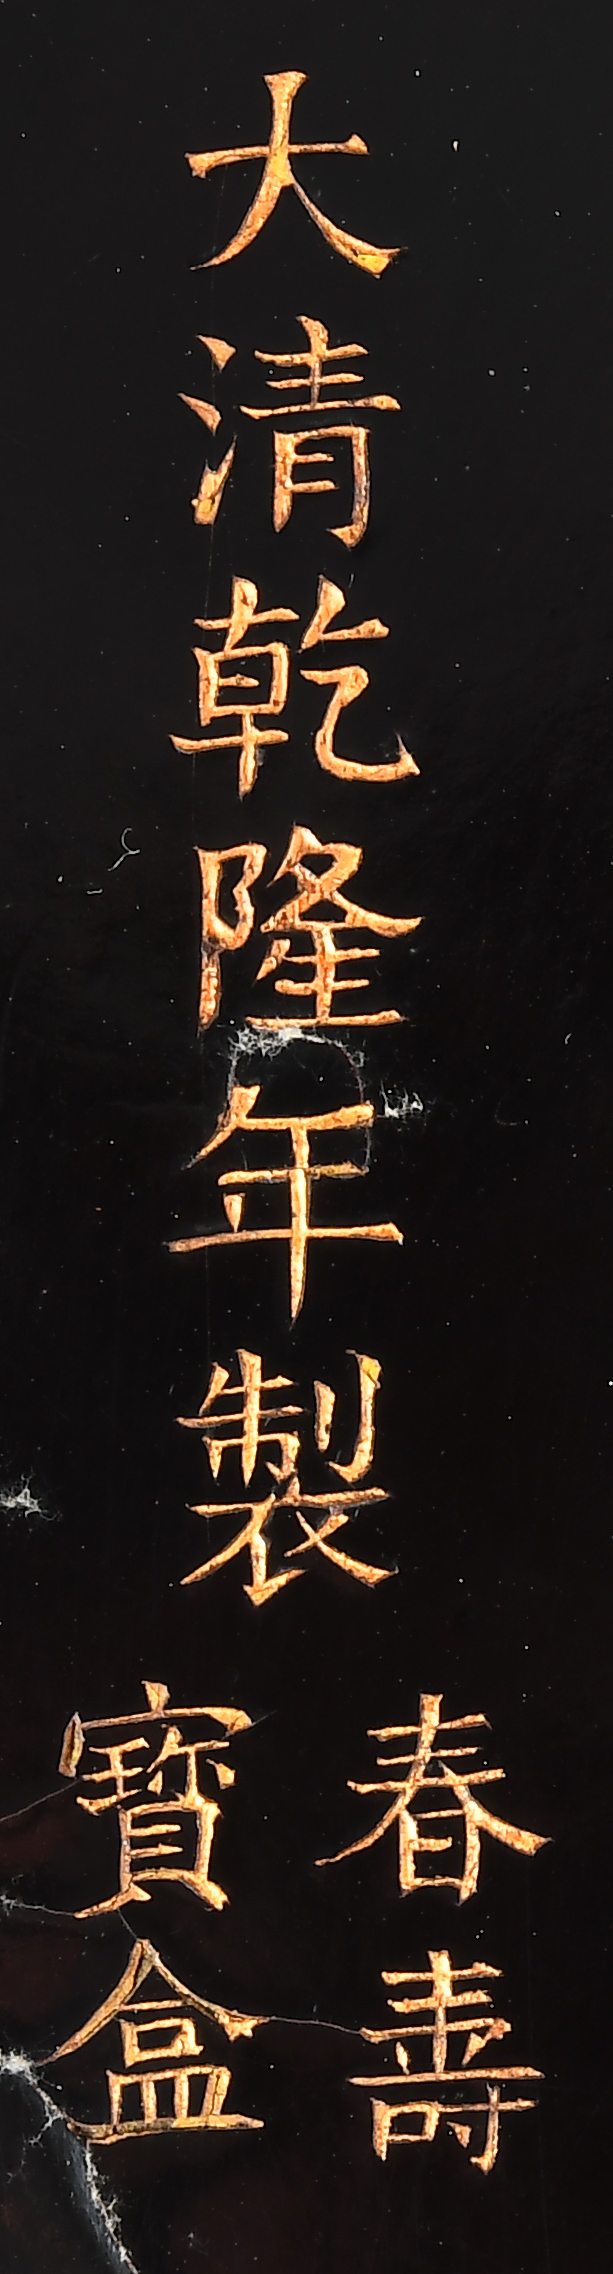 大清乾隆年製
春壽
寶盒